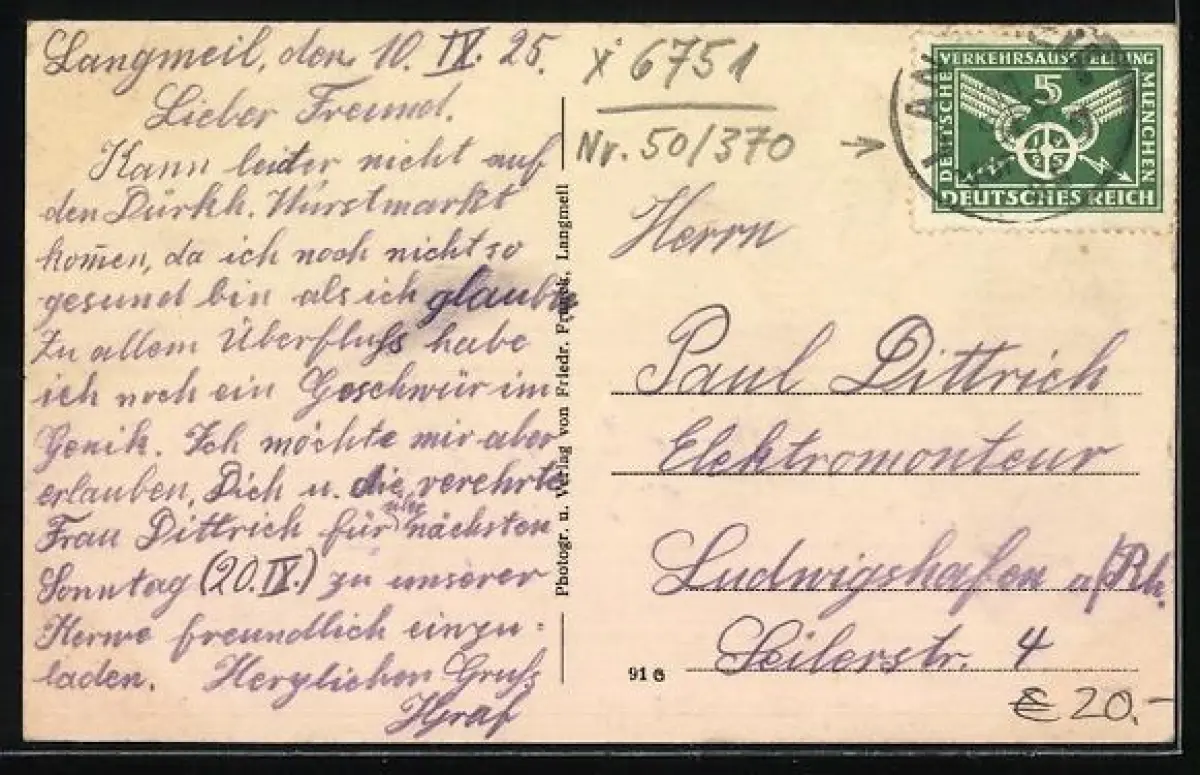 Langmeil, den 10. IX. 25.
Lieber Freund.
Kann leider nicht auf
den Dürkh. Wurstmarkt
kom̄en, da ich noch nicht so
gesund bin als ich glaubte
Zu allem Überfluss habe
ich noch ein Geschwür im
Genik. Ich möchte mir aber
erlauben, Dich u. die verehrte
Frau Dittrich für nächsten
Sonntag (20.IX.) zu unserer
Kerwe freundlich einzu-
laden. Herzlichen Gruss
Photogr. u. Verlag von Friedr. Langmeil
6751
Nr. 50/370
DEUTSCHE VERKEHRSAUSSTELLUNG MUENCHEN
5
1925
DEUTSCHES REICH
Herrn
Paul Dittrich
Elektromonteur
Ludwigshafen a/Rh.
Seilerstr. 4
91
€ 20.-